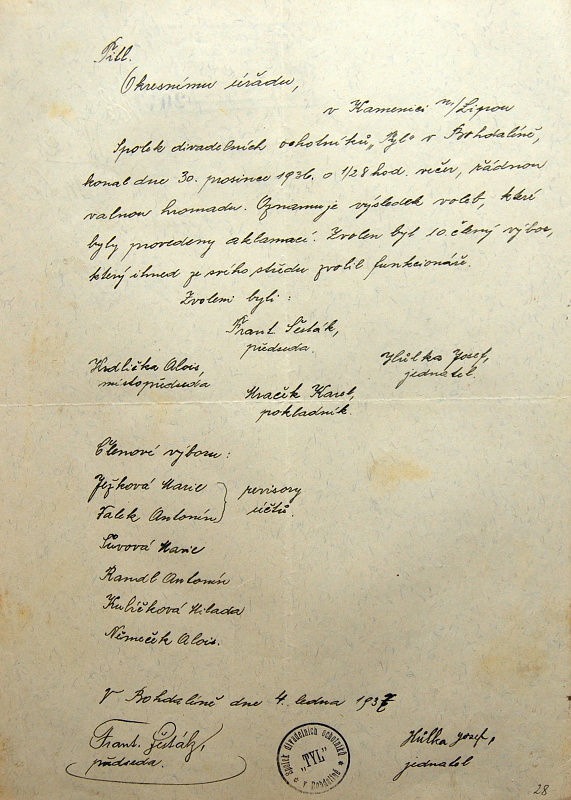 Titl.
Okresnímu úřadu,
v Kamenici n/Lipou
Spolek divadelních ochotníků „Tyl" v Bohdalíně,
konal dne 30. prosince 1936 o 1/2 8 hod. večer, řádnou
valnou hromadu. Oznamuje výsledek voleb, které
byly provedeny aklamací. Zvolen byl 10. členný výbor,
který ihned ze svého středu zvolil funkcionáře.
Zvoleni byli:
Frant Šesták,
předseda.
Hrdlička Alois,
místopředseda
Hůlka Josef,
jednatel.
Mraček Karel,
pokladník.
Členové výboru:
Ježková Marie
Valek Antonín
revisory
účtů.
Šůvová Marie
Randl Antonín
Kubíčková Milada
Němeček Alois.
V Bohdalíně dne 4. ledna 1937
Frant. Šesták,
předseda.
Spolek divadelních ochotníků
"TYL"
v Bohdalíně
Hůlka Josef,
jednatel
28